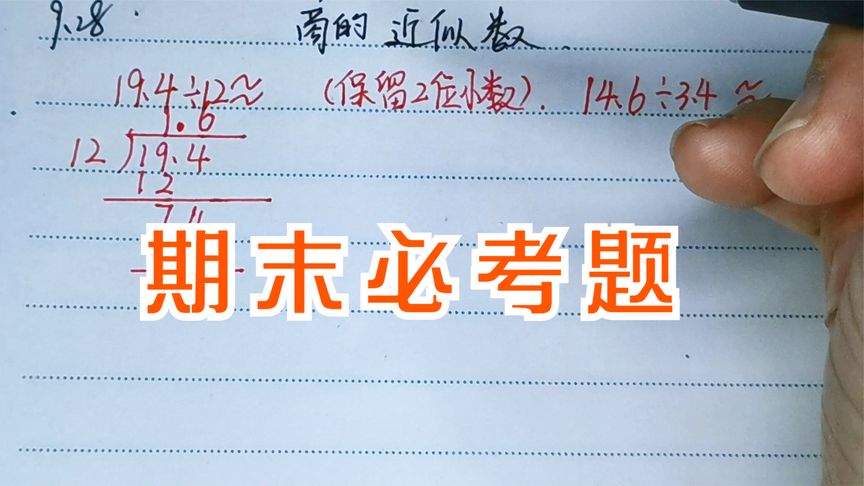 9.28 商的近似数.
19.4÷12≈ (保留2位小数). 14.6÷3.4≈
1.6
12 19.4
12
7 4
期末必考题